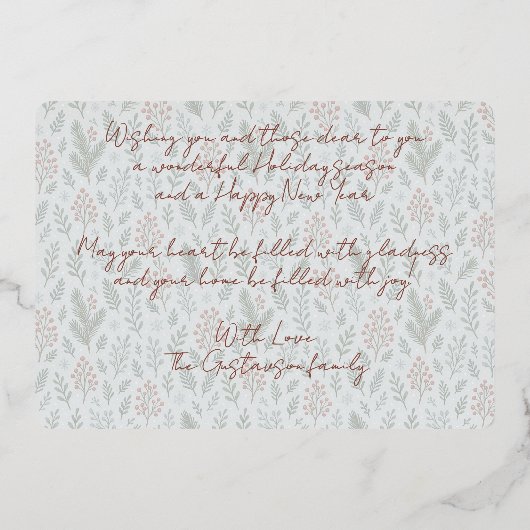 Wishing you and those dear to you
a wonderful Holiday season
and a Happy New Year
May your heart be filled with gladness
and your home be filled with joy!
With Love
The Gustavson family